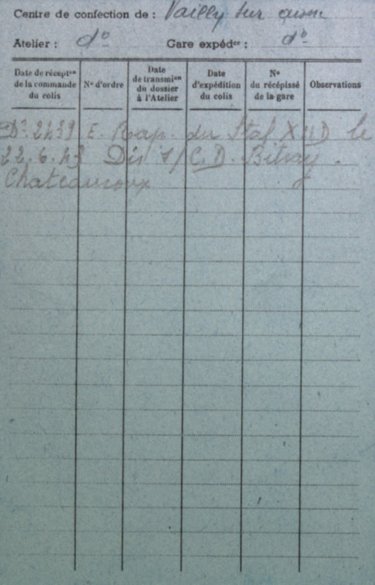 Centre de confection de : Vailly sur aisne
Atelier : d° Gare expédre : d°
Date de récepton de la commande du colis
N° d'ordre
Date de transmion du dossier à l'Atelier
Date d'expédition du colis
N° du récépissé de la gare
Observations
D° 2439 E. Rap. du Stal X le
22.6.43 Dir S/C.D. Bitray.
Chateauroux